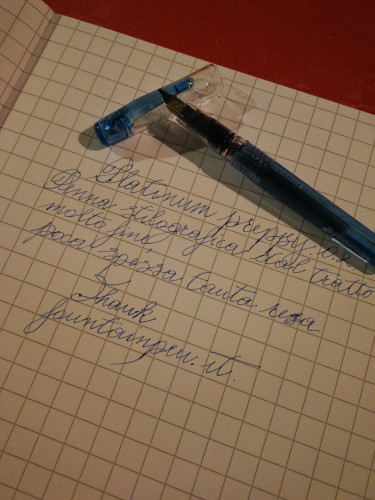 Platinum preppy 0.2
Penna stilografica dal tratto
molto fine
poca spesa tanta resa
Thank
fountainpen.it.